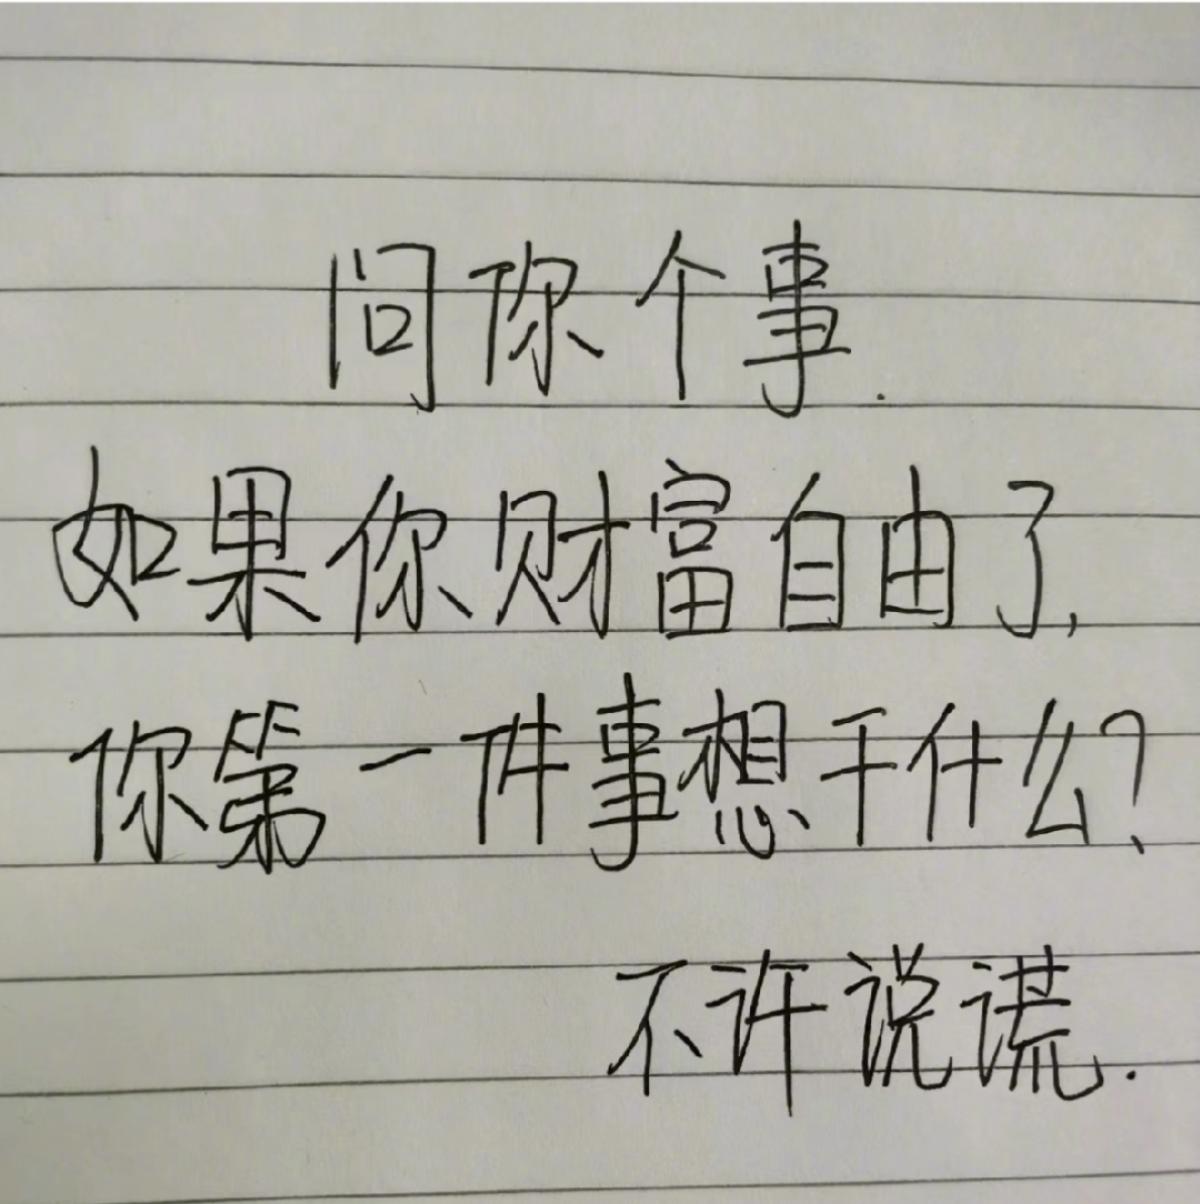 问你个事.
如果你财富自由了,
你第一件事想干什么?
不许说谎.